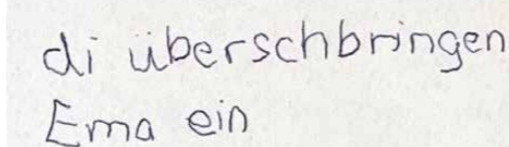 di überschbringen
Ema ein